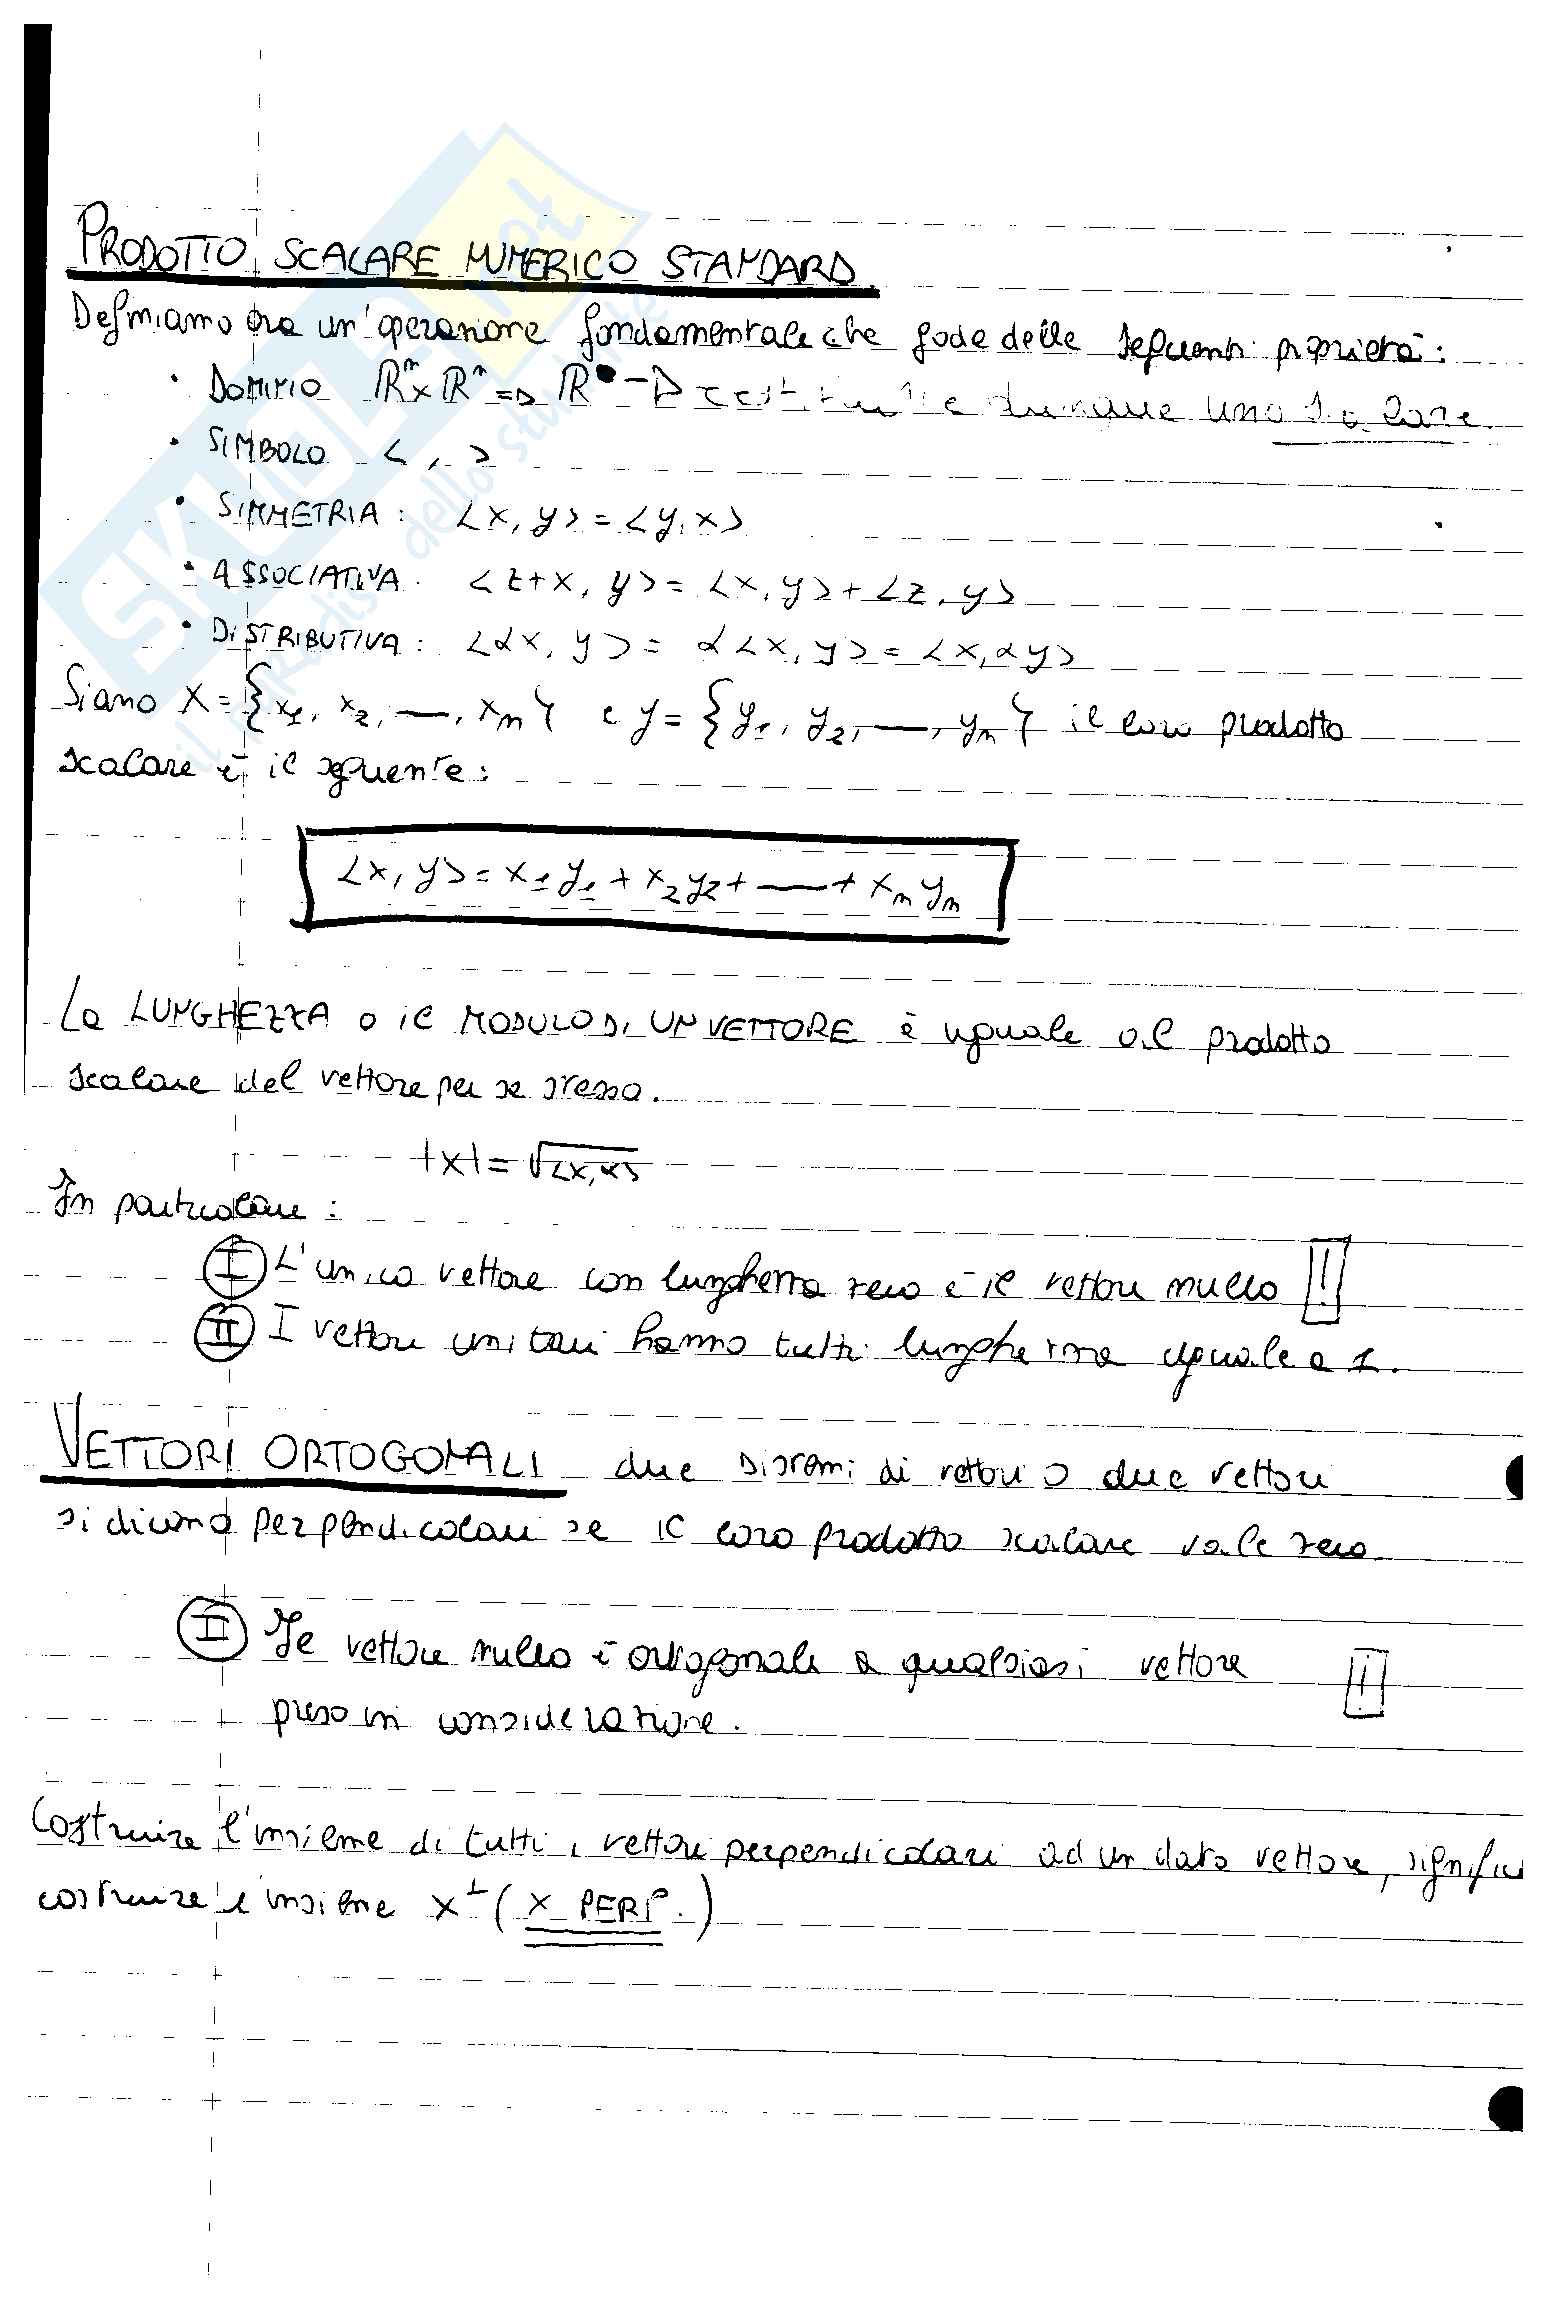 PRODOTTO SCALARE NUMERICO STANDARD.
Definiamo ora un'operazione fondamentale che gode delle seguenti proprietà:
• DOMINIO ℝⁿ×ℝⁿ => ℝ -> restituisce dunque uno scalare.
• SIMBOLO < , >
• SIMMETRIA: <x, y> = <y, x>
• ASSOCIATIVA. <z+x, y> = <x, y> + <z, y>
• DISTRIBUTIVA: <αx, y> = α<x, y> = <x, αy>
Siano x = {x₁, x₂, —, xₙ} e y = {y₁, y₂, —, yₙ} il loro prodotto
scalare è il seguente:
<x, y> = x₁y₁ + x₂y₂ + — + xₙyₙ
La LUNGHEZZA o il MODULO DI UN VETTORE è uguale al prodotto
scalare del vettore per se stesso.
|x| = √<x, x>
In particolare:
I L'unico vettore con lunghezza zero è il vettore nullo !
II I vettori unitari hanno tutti lunghezza uguale a 1.
VETTORI ORTOGONALI due sistemi di vettori o due vettori
si dicono perpendicolari se il loro prodotto scalare vale zero
II Il vettore nullo è ortogonale a qualsiasi vettore !
preso in considerazione.
Costruire l'insieme di tutti i vettori perpendicolari ad un dato vettore, significa
costruire l'insieme x⊥ (x PERP.)
SKUOLA.net
il paradiso dello studente